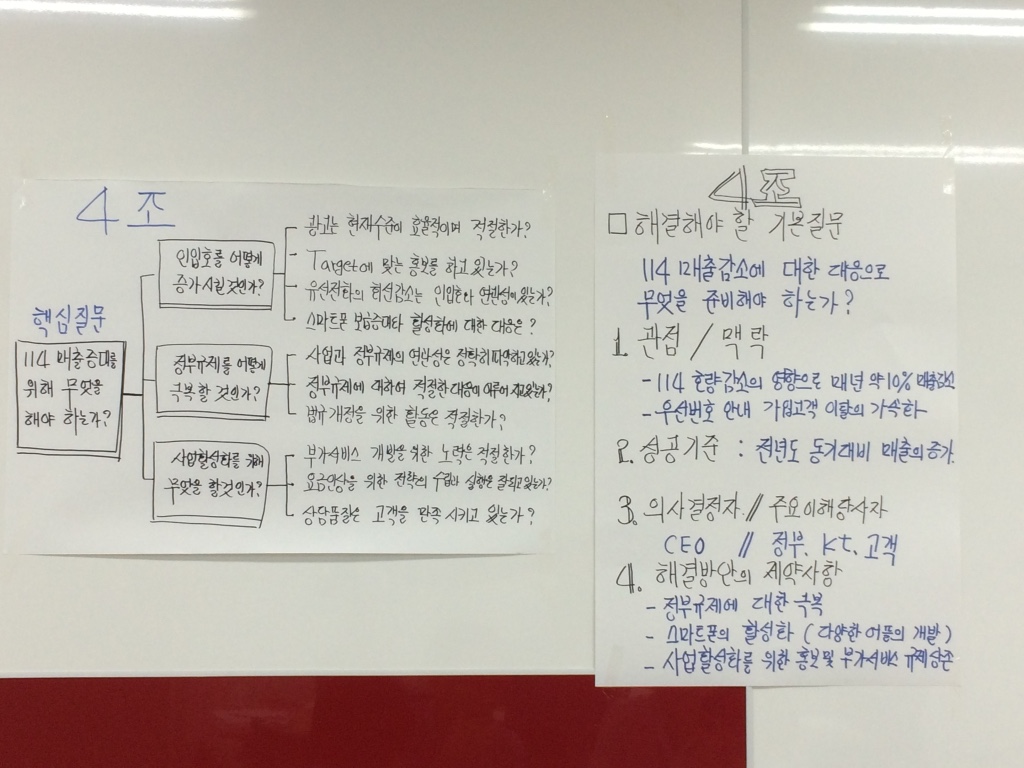 4 조
핵심질문
114 매출증대를
위해 무엇을
해야 하는가?
인입호를 어떻게
증가시킬것인가?
광고는 현재수준이 효율적이며 적절한가?
Target에 맞는 홍보를 하고 있는가?
유선전화의 회선감소는 인입호와 연관성이 있는가?
스마트폰 보급증대와 활성화에 대한 대응은?
정부규제를 어떻게
극복할 것인가?
사업과 정부규제의 연관성은 정확히 파악하고 있는가?
정부규제에 대하여 적절한 대응이 이루어 지고있는가?
법규개정을 위한 활동은 적절한가?
사업활성화를 위해
무엇을 할것인가?
부가서비스 개발을 위한 노력은 적절한가?
요금인상을 위한 전략의 수립과 실행은 잘되고있는가?
상담품질은 고객을 만족 시키고 있는가?
4조
□ 해결해야 할 기본질문
114 매출감소에 대한 대응으로
무엇을 준비해야 하는가?
1. 관점 / 맥락
- 114 호량감소의 영향으로 매년 약 10% 매출감소
- 우선번호 안내 가입고객 이탈의 가속화
2. 성공기준 : 전년도 동기대비 매출의 증가.
3. 의사결정자 // 주요이해당사자
CEO // 정부, kt, 고객
4. 해결방안의 제약사항
- 정부규제에 대한 극복
- 스마트폰의 활성화 (다양한 어플의 개발)
- 사업활성화를 위한 홍보및 부가서비스 규제상존